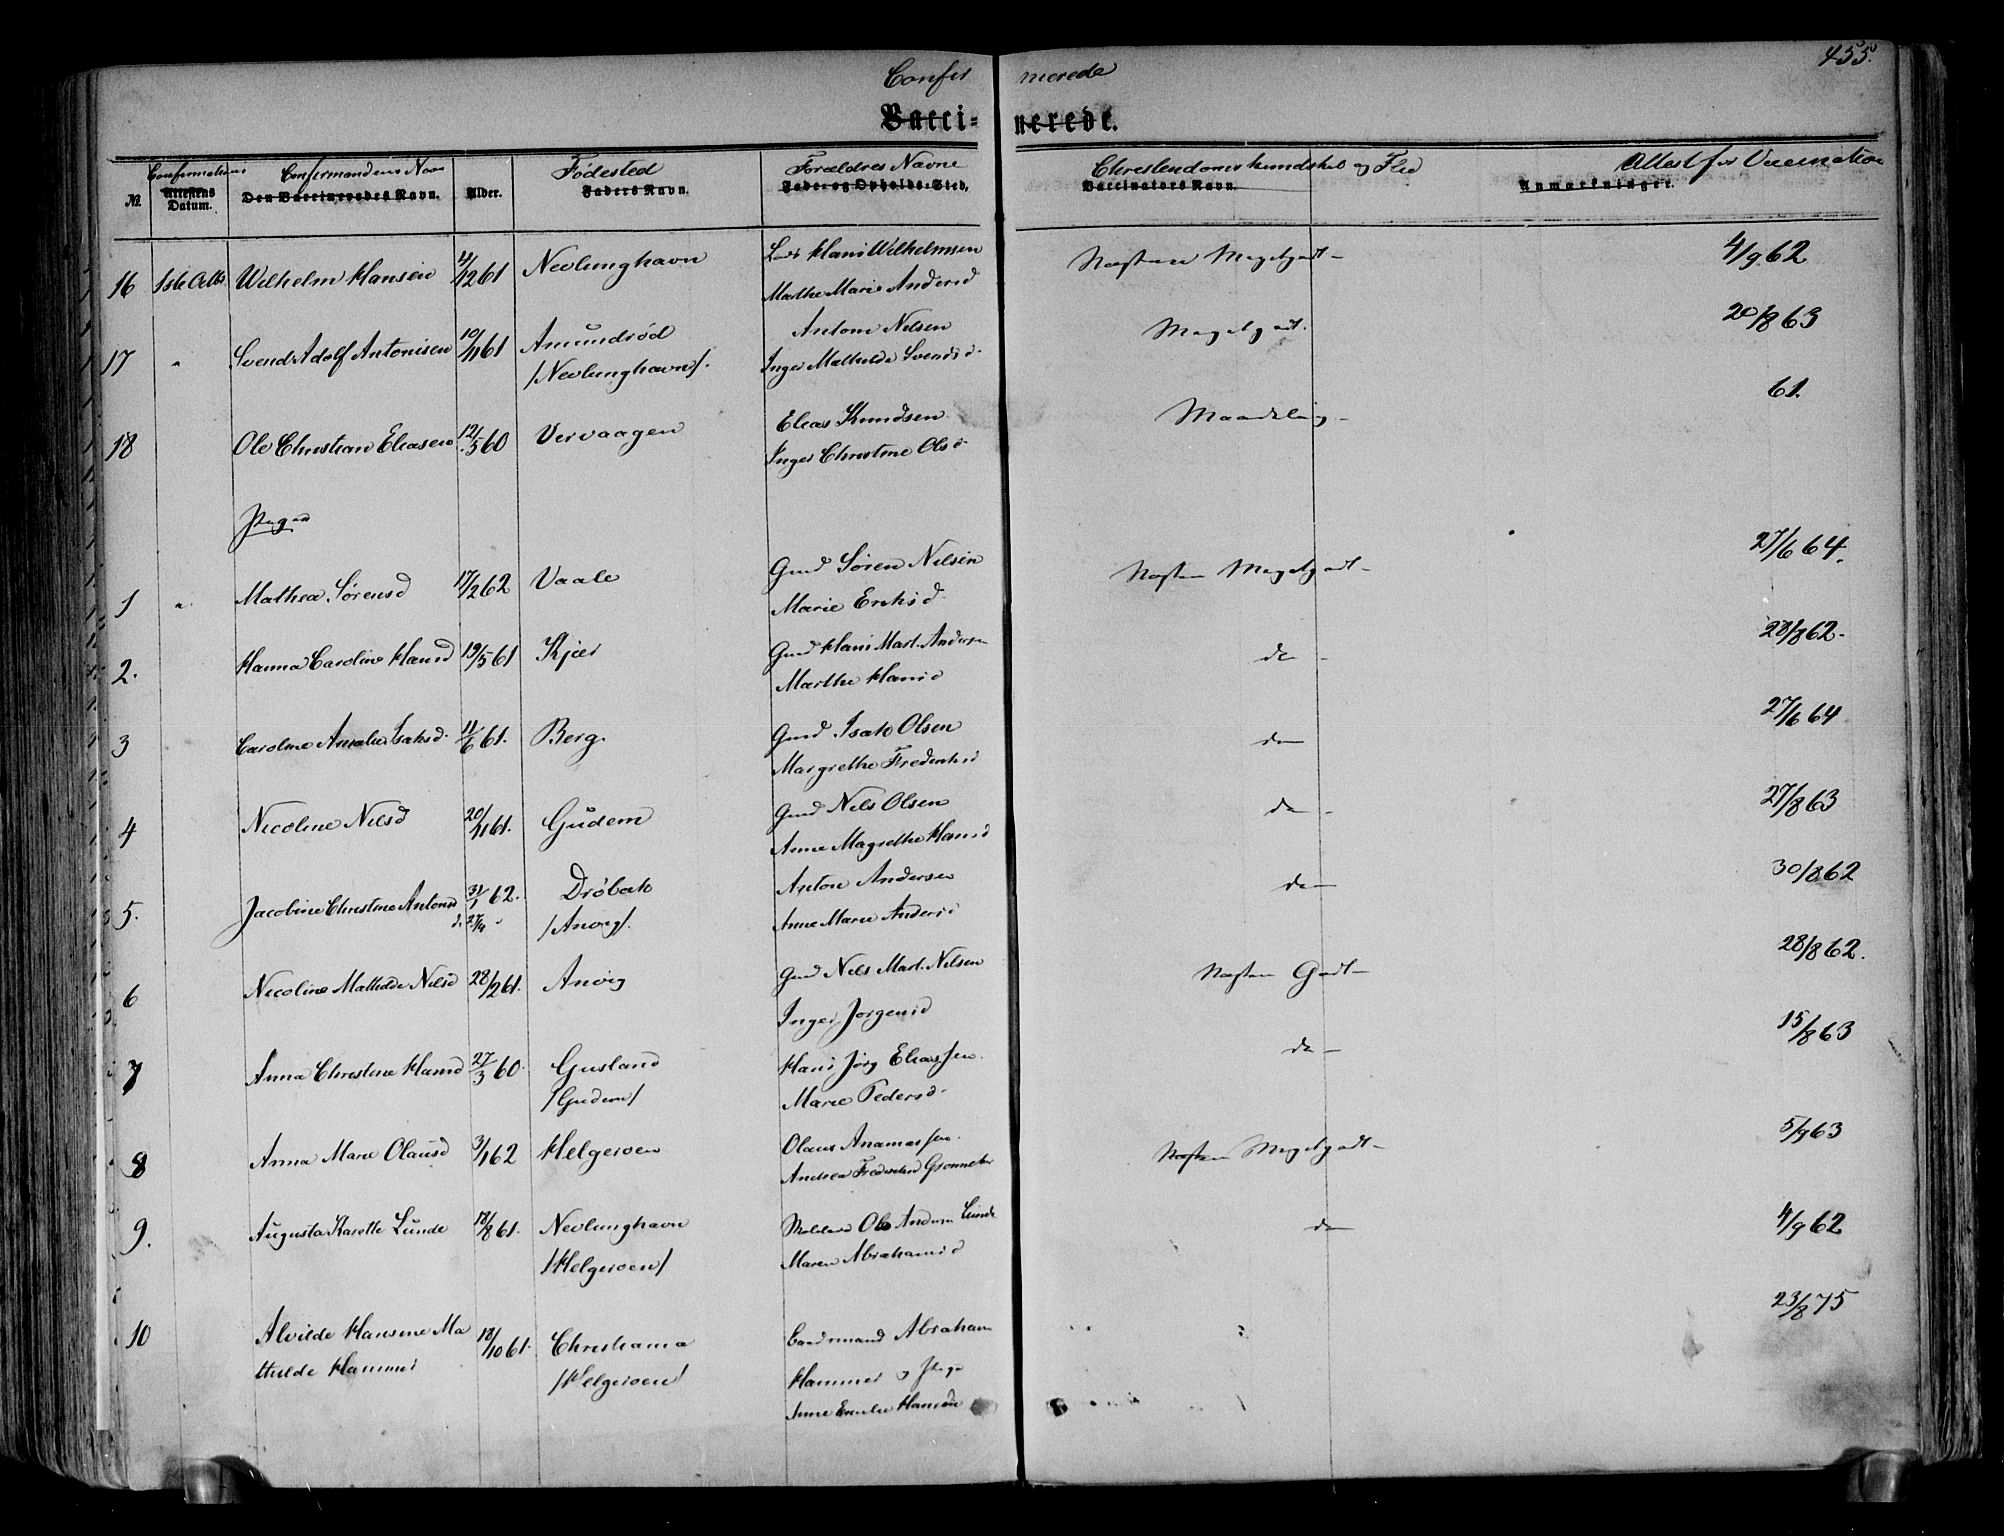 455.
Confir merede
Vacci= nerede.
№
Confirmations
Attestens Datum.
Confirmandens Navn
Den Vaccineredes Navn.
Alder.
Fødested
Faders Navn.
Forældres Navne
Fader og Opholds-Sted.
Christendomskundskab og Flid
Vaccinators Navn.
Attest for Vaccination
Anmærkninger.
16 1ste Octb. Wilhelm Hansen 4/12 61 Nevlunghavn Hans Wilhelmsen Næsten Megetgodt 4/9 62
Marthe Marie Andersd
17 " Svend Adolf Antonisen 10/11 61 Amundrød Anton Nilsen Megetgodt. 20/8 63
/Nevlunghavn/. Inger Mathilde Svendsd.
18 Ole Christian Eliasen 12/5 60 Vervaagen Elias Knudsen Maadelig 61.
Inger Christine Olsd
Piger
1 " Mathea Sørensd 17/2 62 Vaale Gmd Søren Nilsen Næsten Megetgodt 27/6 64.
Marie Eriksd.
2. Hanna Caroline Hansd 19/5 61 Kjær Gmd Hans Mart. Andersen do 28/8 62.
Marthe Hansd
3 Caroline Amalie Isaksd. 11/6 61. Berg. Gmd Isak Olsen do 27/6 64
Margrethe Frederiksd
4 Nicoline Nilsd 20/11 61. Gudem Gmd Nils Olsen do 27/8 63
Anne Magrethe Hansd
5. Jacobine Christine Antonsd 31/1 62. Drøbak Anton Andersen do 30/8 62
d. 27/4 " /Anvig/. Anne Marie Andersd
6 Nicoline Mathilde Nilsd 28/2 61. Anvig Gmd Nils Mart. Nilsen Næsten Godt 28/8 62.
Inger Jørgensd
7 Anna Christine Hansd 27/3 60. Gusland Hans Jørg Eliassen. do 15/8 63
/Gudem/ Marie Pedersd.
8 Anna Marie Olausd 3/1 62 Helgeroen Olaus Ananiassen. Næsten Megetgodt 5/9 63
Andrea Frederikke
9. Augusta Karette Lunde 18/8 61. Nevlunghavn Ole Andersen Lunde do 4/9 62
/Helgeroen/ Maren Abrahamsd
10 Alvilde Hansine Ma 18/10 61. Christiania Abraham 23/8 75
thilde Hammer /Helgeroen/ Hammer og Pige
Anne Emilie Hansen